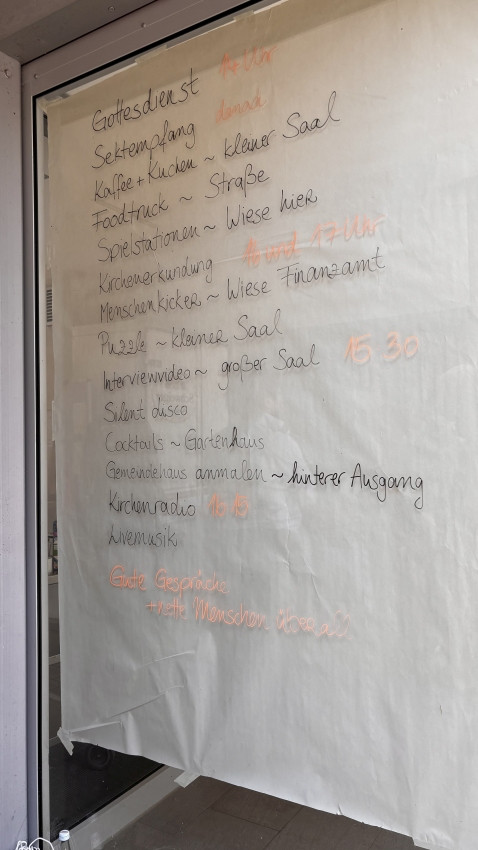 Gottesdienst 14 Uhr
Sektempfang danach
Kaffee + Kuchen ~ kleiner Saal
Foodtruck ~ Straße
Spielstationen ~ Wiese hier
Kirchenerkundung 16 und 17 Uhr
Menschenkicker ~ Wiese Finanzamt
Puzzle ~ kleiner Saal
Interviewvideo ~ großer Saal 15 30
Silent disco
Cocktails ~ Gartenhaus
Gemeindehaus anmalen ~ hinterer Ausgang
Kirchenradio 16 15
Livemusik
Gute Gespräche
+ nette Menschen überall